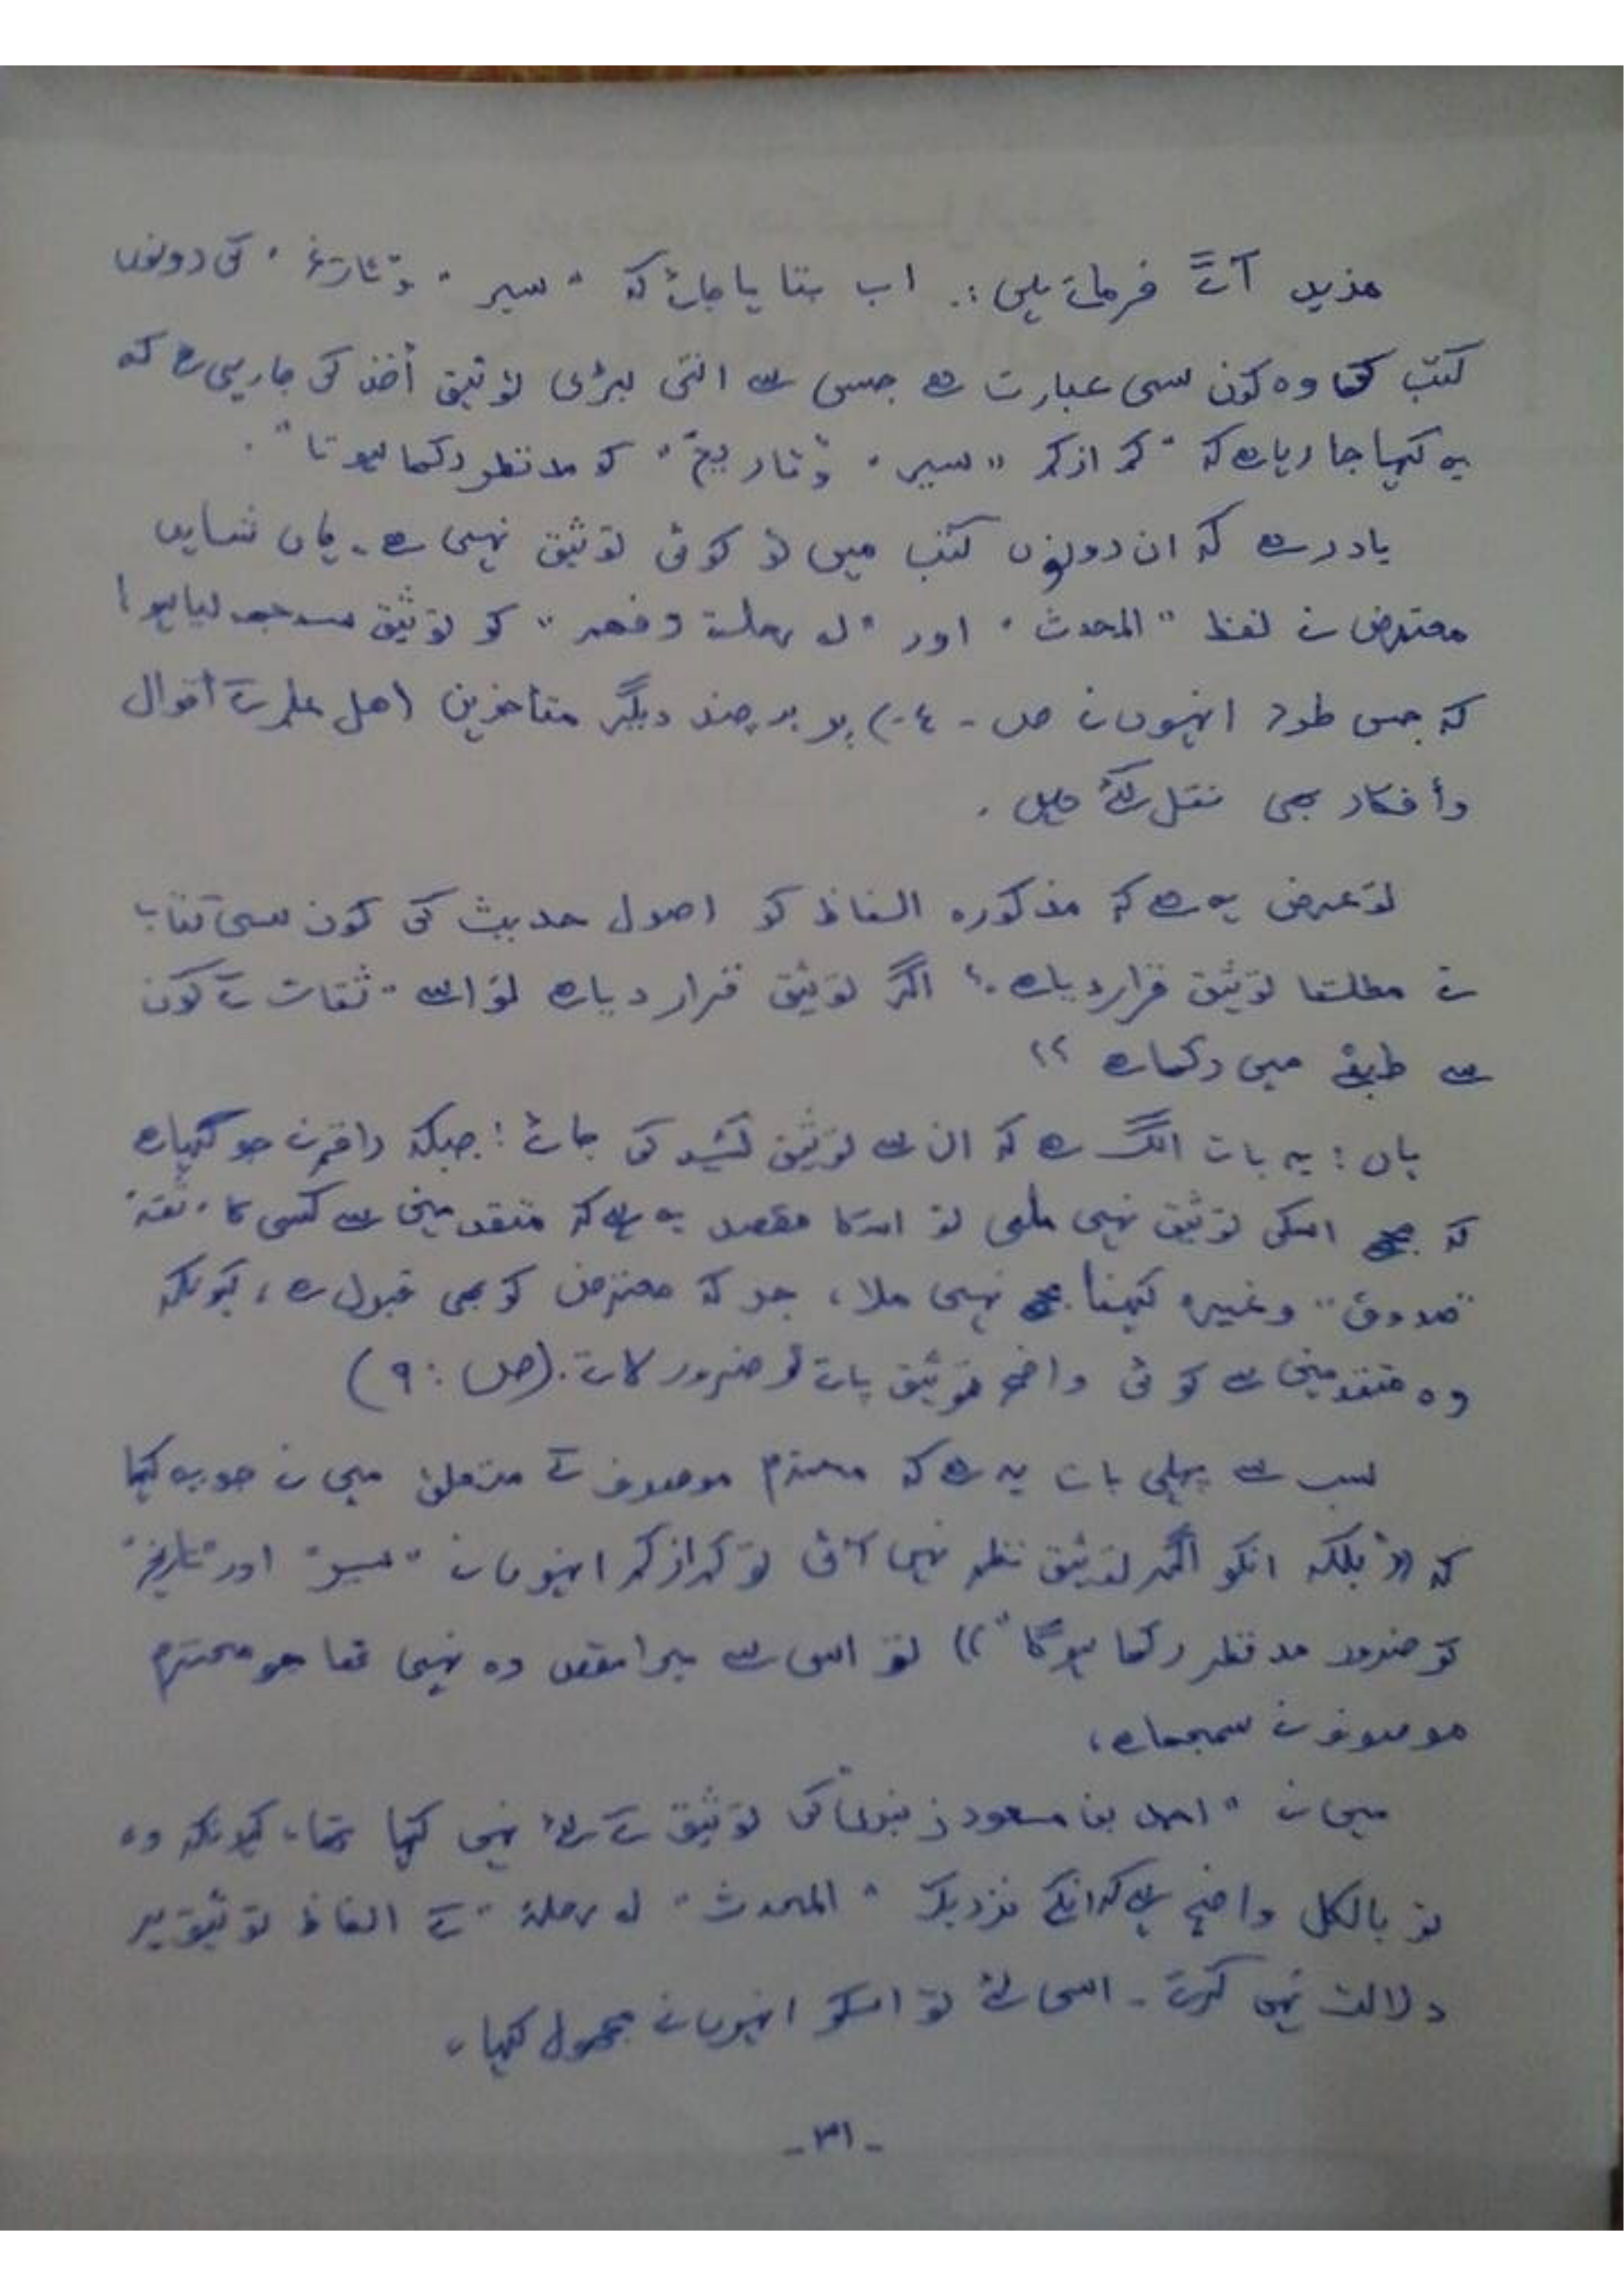 مزید آگے فرماتے ہیں :۔ اب بتایا جائے کہ "سیر" و "تاریخ" کی دونوں
کتب کا وہ کون سی عبارت ہے جس سے اتنی بڑی توثیق أخذ کی جارہی ہے کہ
یہ کہا جا رہا ہے کہ "کم از کم "سیر" و "تاریخ" کو مدنظر رکھا ہوتا"۔
یاد رہے کہ ان دونوں کتب میں تو کوئی توثیق نہیں ہے۔ ہاں شاید
معترض نے لفظ "المحدث" اور "له رحلة وفهم" کو توثیق سمجھ لیا ہو!
کہ جس طرح انہوں نے ص۔٤۰) پر چند دیگر متأخرین (اهل علم کے أقوال
وأفکار بھی نقل کئے ہیں۔
تو عرض یہ ہے کہ مذکورہ الفاظ کو اصول حدیث کی کون سی کتاب
نے مطلقا توثیق قرار دیا ہے۔؟ اگر توثیق قرار دیا ہے تو اسے ثقات کے کون
سے طبقے میں رکھا ہے ؟؟
ہاں ! یہ بات الگ ہے کہ ان سے توثیق کشید کی جائے ! جبکہ راقم نے جو کہا ہے
کہ اسکی توثیق نہیں ملی تو اسکا مقصد یہ ہے کہ متقدمین سے کسی کا "ثقة"
"صدوق" وغیرہ کہنا نہیں ملا، جو کہ معترض کو بھی قبول ہے، کیونکہ
وہ متقدمین سے کوئی واضح توثیق پاتے تو ضرور لاتے۔ (ص : ۹)
سب سے پہلی بات یہ ہے کہ محترم موصوف کے متعلق میں نے جو یہ کہا
کہ (("بلکہ انکو اگر توثیق نظر نہیں آئی تو کم از کم انہوں نے "سیر" اور "تاریخ"
کو ضرور مدنظر رکھا ہوگا")) تو اس سے میرا مقصد وہ نہیں تھا جو محترم
موصوف نے سمجھا ہے،
میں نے "احمد بن مسعود زنبری" کی توثیق کے لئے نہیں کہا تھا۔ کیونکہ وہ
تو بالکل واضح ہے کہ انکے نزدیک "المحدث" له رحلة" کے الفاظ توثیق پر
دلالت نہیں کرتے۔ اسی لئے تو اسکو انہوں نے مجہول کہا۔
-۳۱-